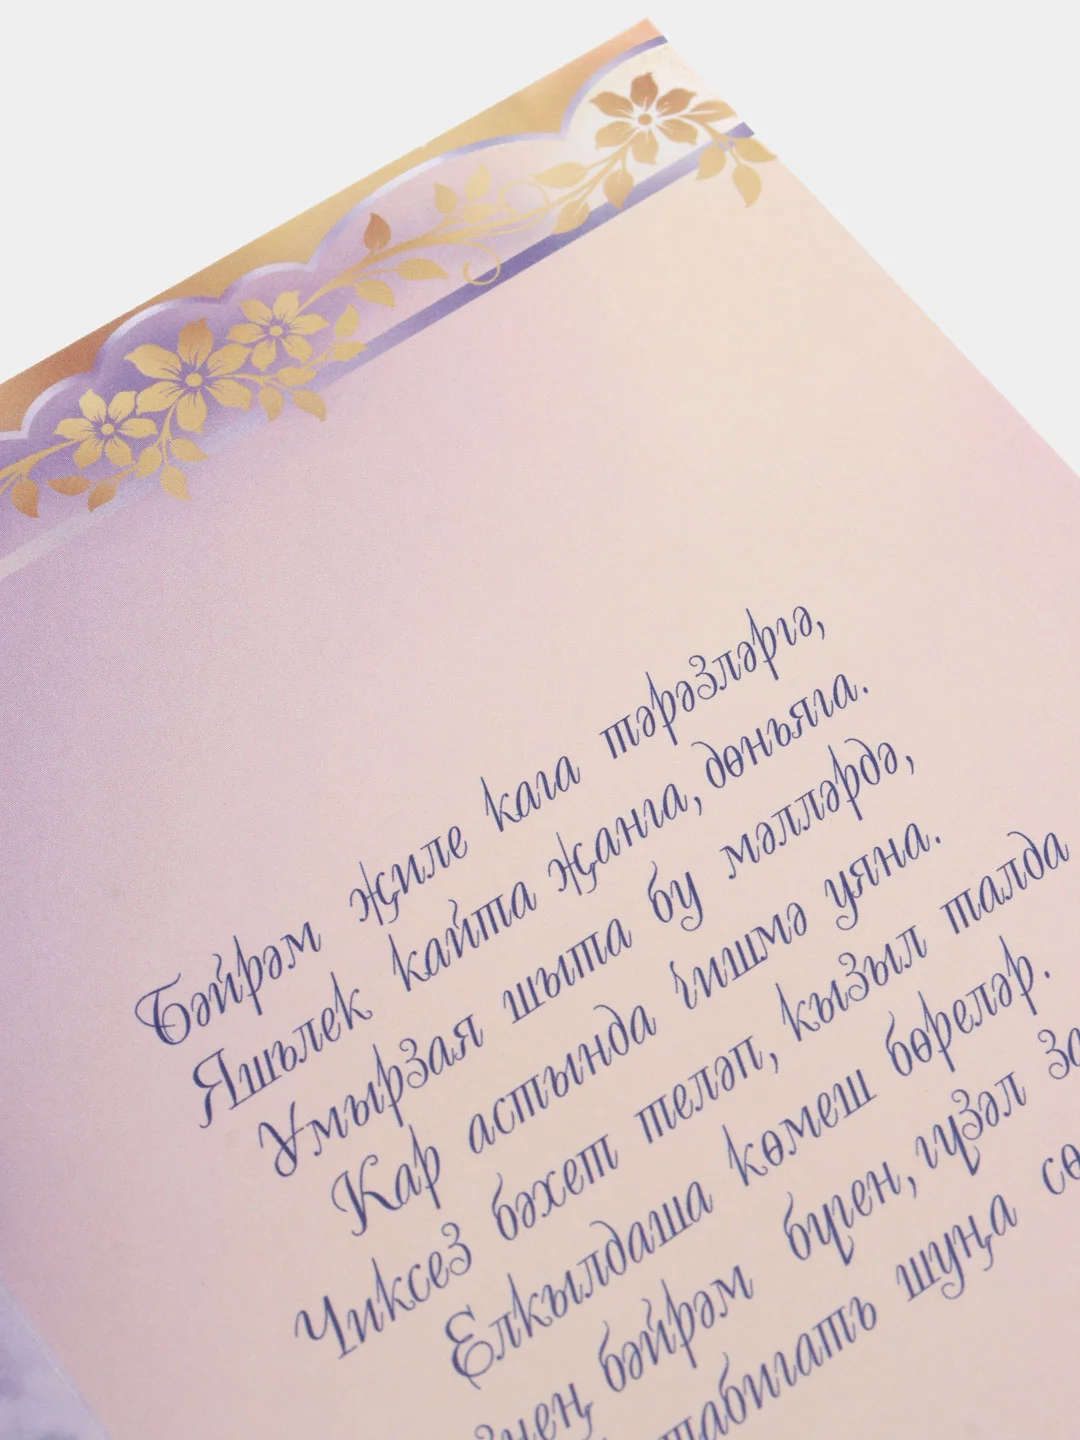 Бәйрәм җиле кага тәрәзләргә,
Яшьлек кайта җанга, дөньяга.
Умырзая шыта бу мәлләрдә,
Кар астында чишмә уяна.
Чиксез бәхет теләп, кызыл талда
Елкылдаша көмеш бөреләр.
бәйрәм бүген, гүзәл
табигать шуңа